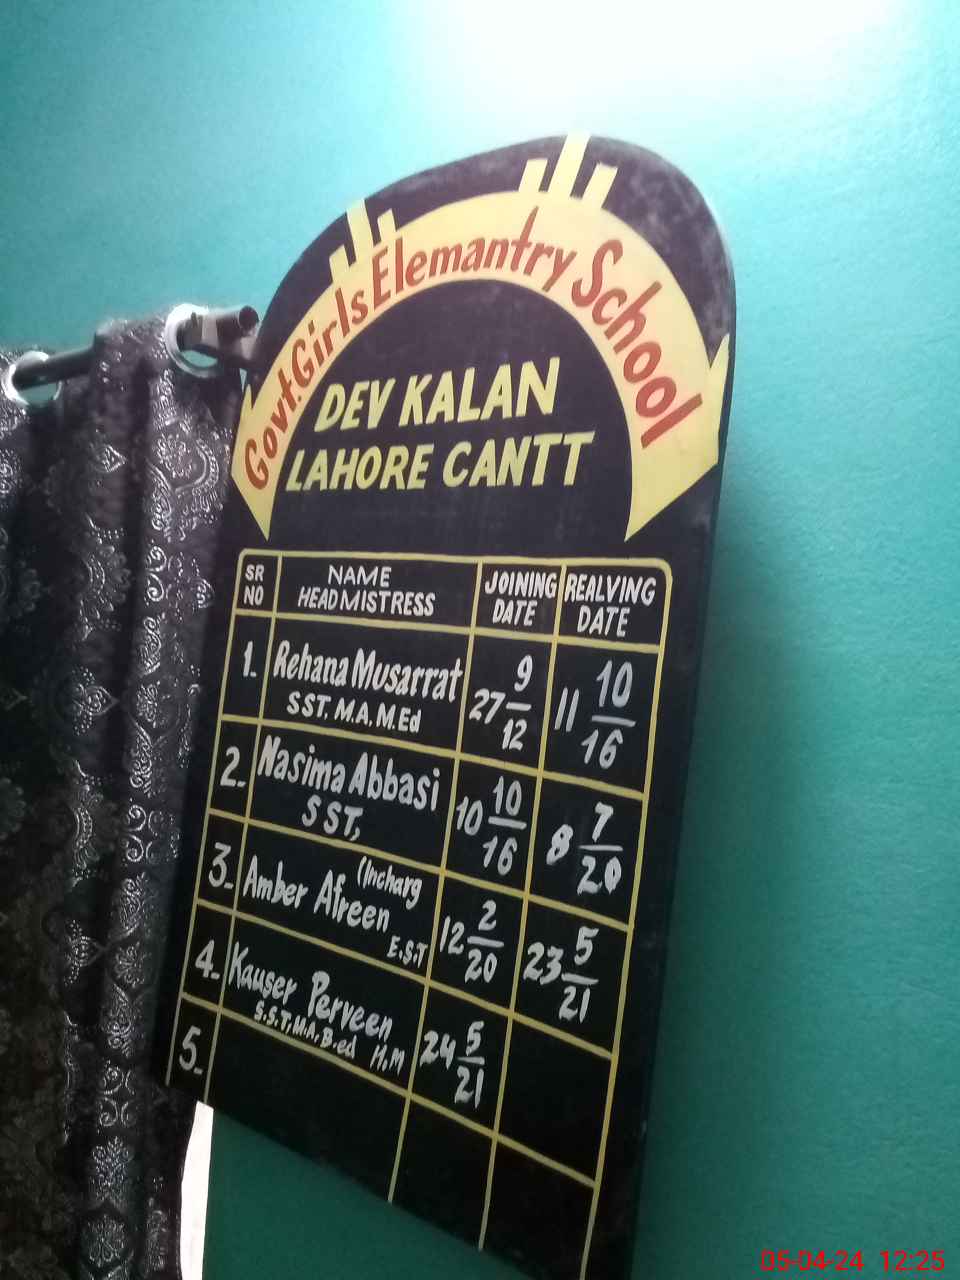 Govt. Girls Elemantry School
DEV KALAN
LAHORE CANTT
SR NO
NAME HEADMISTRESS
JOINING DATE
REALVING DATE
1. Rehana Musarrat SST, M.A, M.Ed 27 9/12 11 10/16
2. Nasima Abbasi SST, 10 10/16 8 7/20
3. Amber Afreen (Incharg E.S.T 12 2/20 23 5/21
4. Kauser Perveen S.S.T, M.A, B.ed H.M 24 5/21
5.
05-04-24 12:25